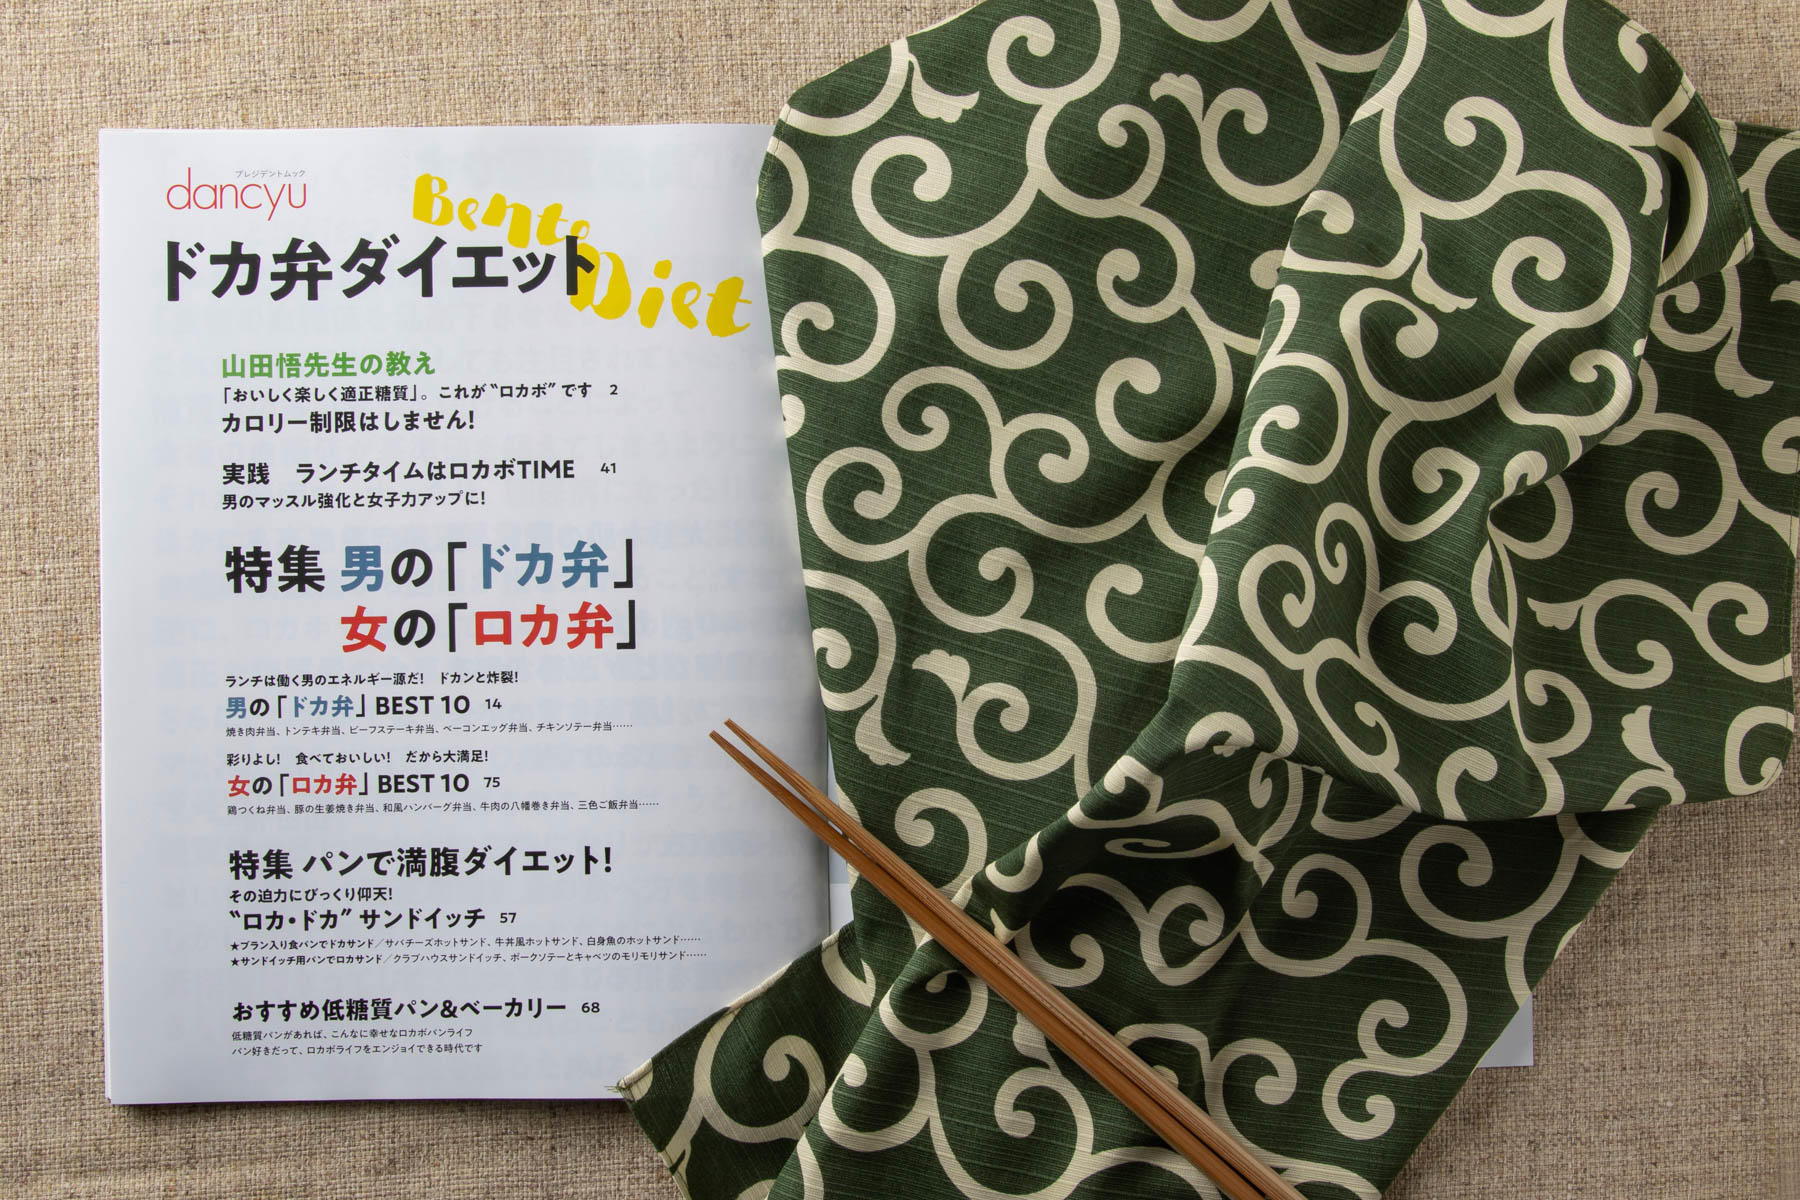 プレジデントムック
dancyu
Bento
Diet
ドカ弁ダイエット
山田悟先生の教え
「おいしく楽しく適正糖質」。これが“ロカボ”です 2
カロリー制限はしません!
実践 ランチタイムはロカボTIME 41
男のマッスル強化と女子力アップに!
特集 男の「ドカ弁」
女の「ロカ弁」
ランチは働く男のエネルギー源だ! ドカンと炸裂!
男の「ドカ弁」BEST 10 14
焼き肉弁当、トンテキ弁当、ビーフステーキ弁当、ベーコンエッグ弁当、チキンソテー弁当……
彩りよし! 食べておいしい! だから大満足!
女の「ロカ弁」BEST 10 75
鶏つくね弁当、豚の生姜焼き弁当、和風ハンバーグ弁当、牛肉の八幡巻き弁当、三色ご飯弁当……
特集 パンで満腹ダイエット!
その迫力にびっくり仰天!
“ロカ・ドカ”サンドイッチ 57
★ブラン入り食パンでドカサンド/サバチーズホットサンド、牛丼風ホットサンド、白身魚のホットサンド……
★サンドイッチ用パンでロカサンド/クラブハウスサンドイッチ、ポークソテーとキャベツのモリモリサンド……
おすすめ低糖質パン&ベーカリー 68
低糖質パンがあれば、こんなに幸せなロカボパンライフ
パン好きだって、ロカボライフをエンジョイできる時代です